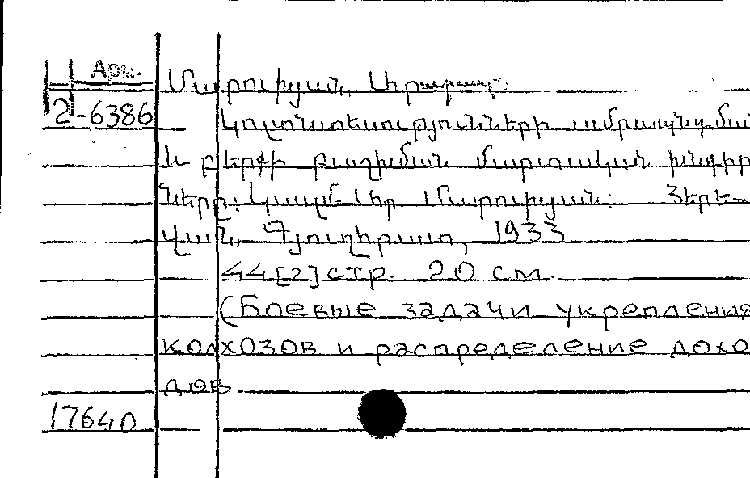 Арм.
2-6386
Մարուխյան, Արարատ:
Կոլտնտեսությունների ամրապնդման
և բերքի բաշխման մարտական խնդիր
ները: Կազմ. Ար. Մարուխյան: Յերե-
վան, Գյուղհրատ, 1933
44[2] стр. 20 см.
(Боевые задачи укрепления
колхозов и распределение дохо
дов
17640